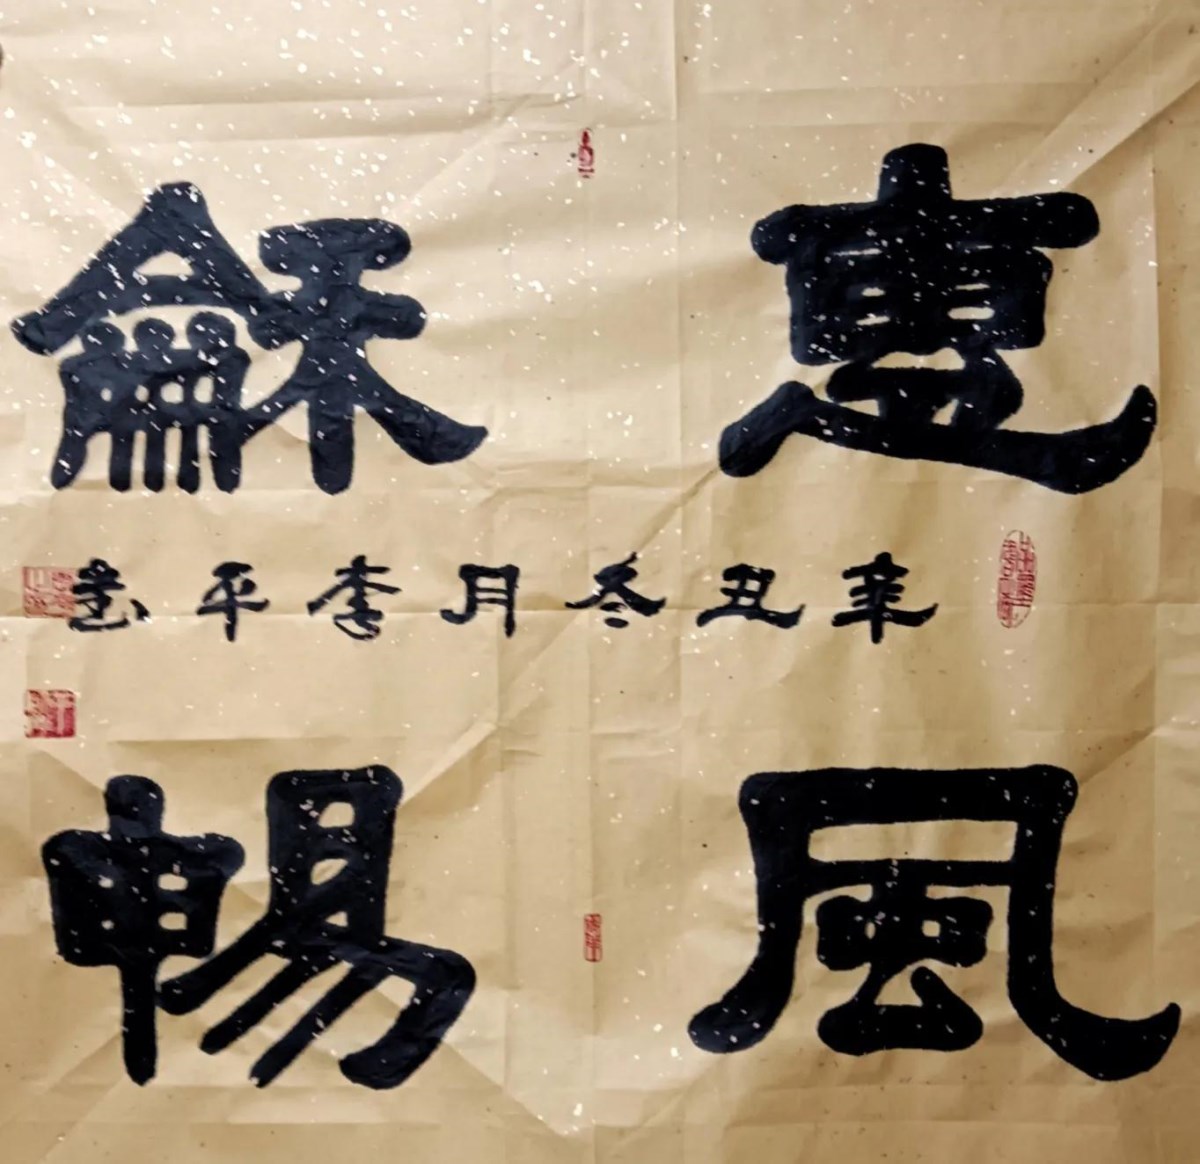 惠風
龢暢
辛丑冬月李平